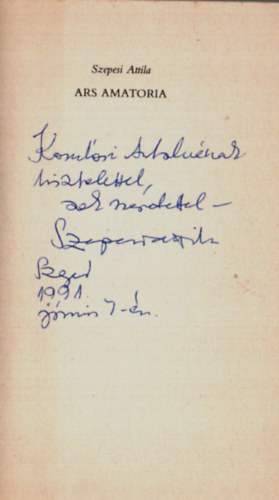 Szepesi Attila
ARS AMATORIA
tisztelettel,
sok szeretettel –
Szepesi Attila
Szeged
1991.
június 7-én.